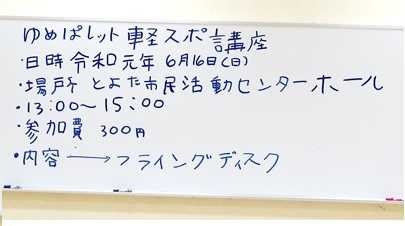 ゆめぱレット 軽スポ講座
・日時 令和元年 6月16日(日)
・場所 とよた市民活動センターホール
・13:00～15:00
・参加費 300円
・内容 → フライングディスク